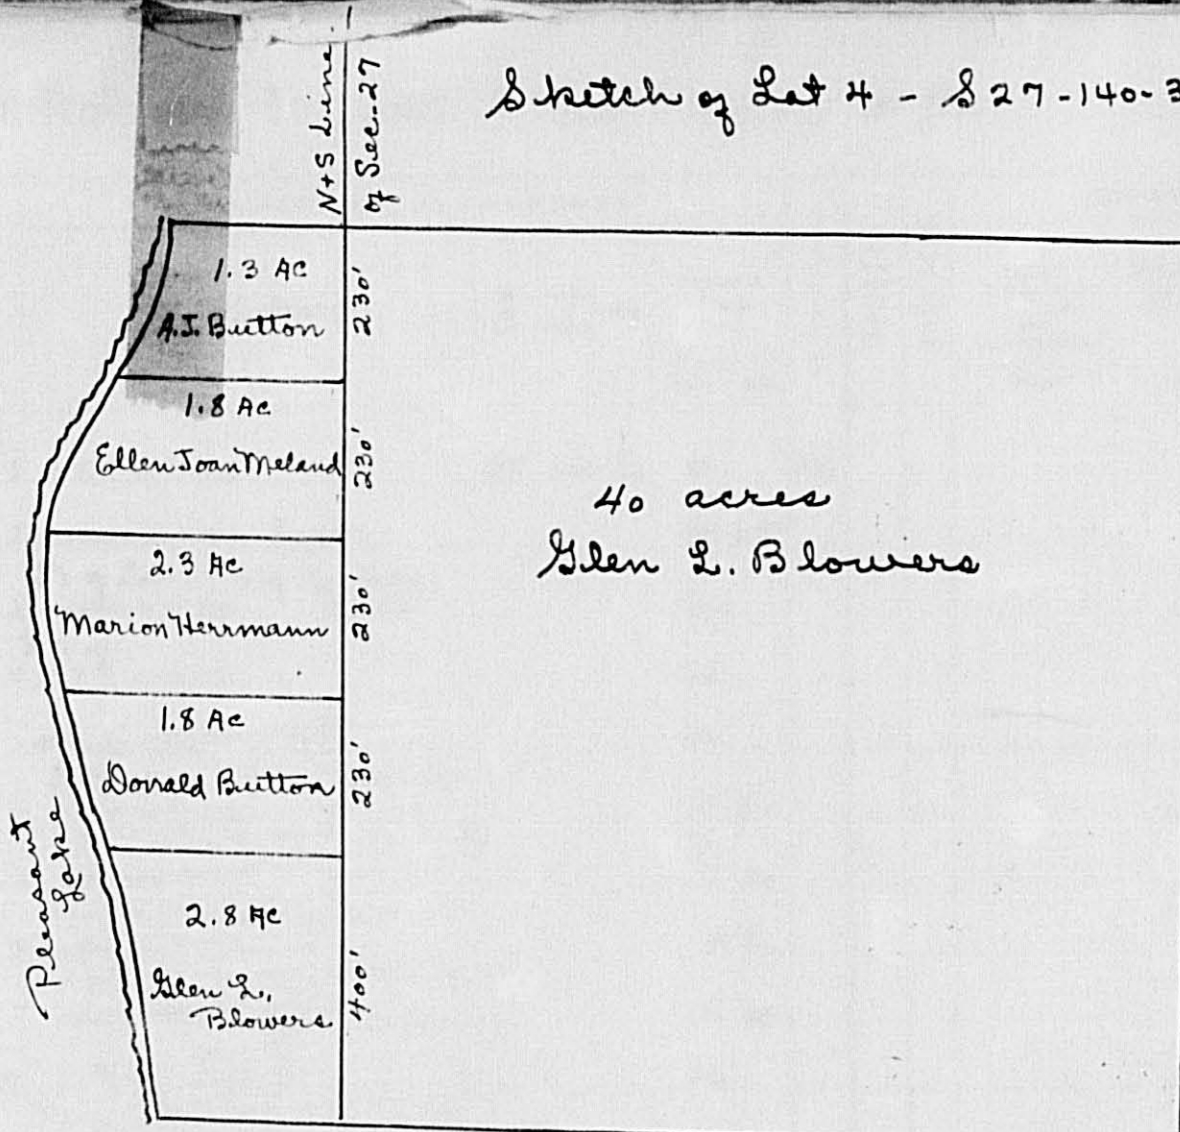 Sketch of Lot 4 - S27-140-3
N+S Line
of Sec. 27
1.3 Ac
A.J. Button
230'
1.8 Ac
Ellen Joan Meland
230'
2.3 Ac
Marion Herrmann
230'
1.8 Ac
Donald Button
230'
2.8 Ac
Glen L.
Blowers
400'
Pleasant
Lake
40 acres
Glen L. Blowers